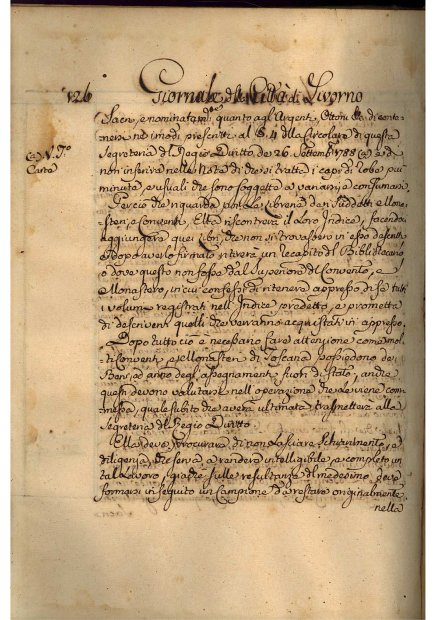 126 Giornale della Città di Livorno
Sacri, e nominatam.te quanto agl'Argenti, Ottoni &c. di conte-
nersi ne modi prescritti al §. 4. della Circolare di questa
(a) V. F.o
Carte
Segreteria del Regio Diritto de 26. Settembre 1788. (a) e di
non inserire nella Nota di che si tratta i capi di robe più
minute, e usuali che sono soggette a variarsi, e consumarsi.
Perciò che riguarda poi le Librerie dei suddetti Mona-
steri, e Conventi, Ella riscontrerà il loro Indice, facendo
aggiungere quei Libri che non si trovassero in esso descritti
e dopo averlo firmato ritirerà un recapito del Bibliotecario,
o dove questo non fosse dal Superiore del Convento, e
Monastero, in cui confessi di ritenere appresso di se tutti
i volumi registrati nell'Indice predetto, e prometta
di descrivervi quelli che verranno acquistati in appresso.
Dopo tutto ciò è necessario fare attenzione come mol-
ti Conventi, e Monasteri di Toscana possiedono dei
Beni, ed anno degl'assegnamenti fuori di Stato, anche
questi devono valutarsi nell'operazione che le viene com-
messa, quale subito che averà ultimata trasmetterà alla
Segreteria del Regio Diritto
Ella deve procurare di non lasciare schiarimenti, e
diligenza, che serva a rendere intelligibile, e completo un
tal Lavoro, giacchè sulle resultanze del medesimo deve
formarsi in seguito un Campione da restare originalmente
nella